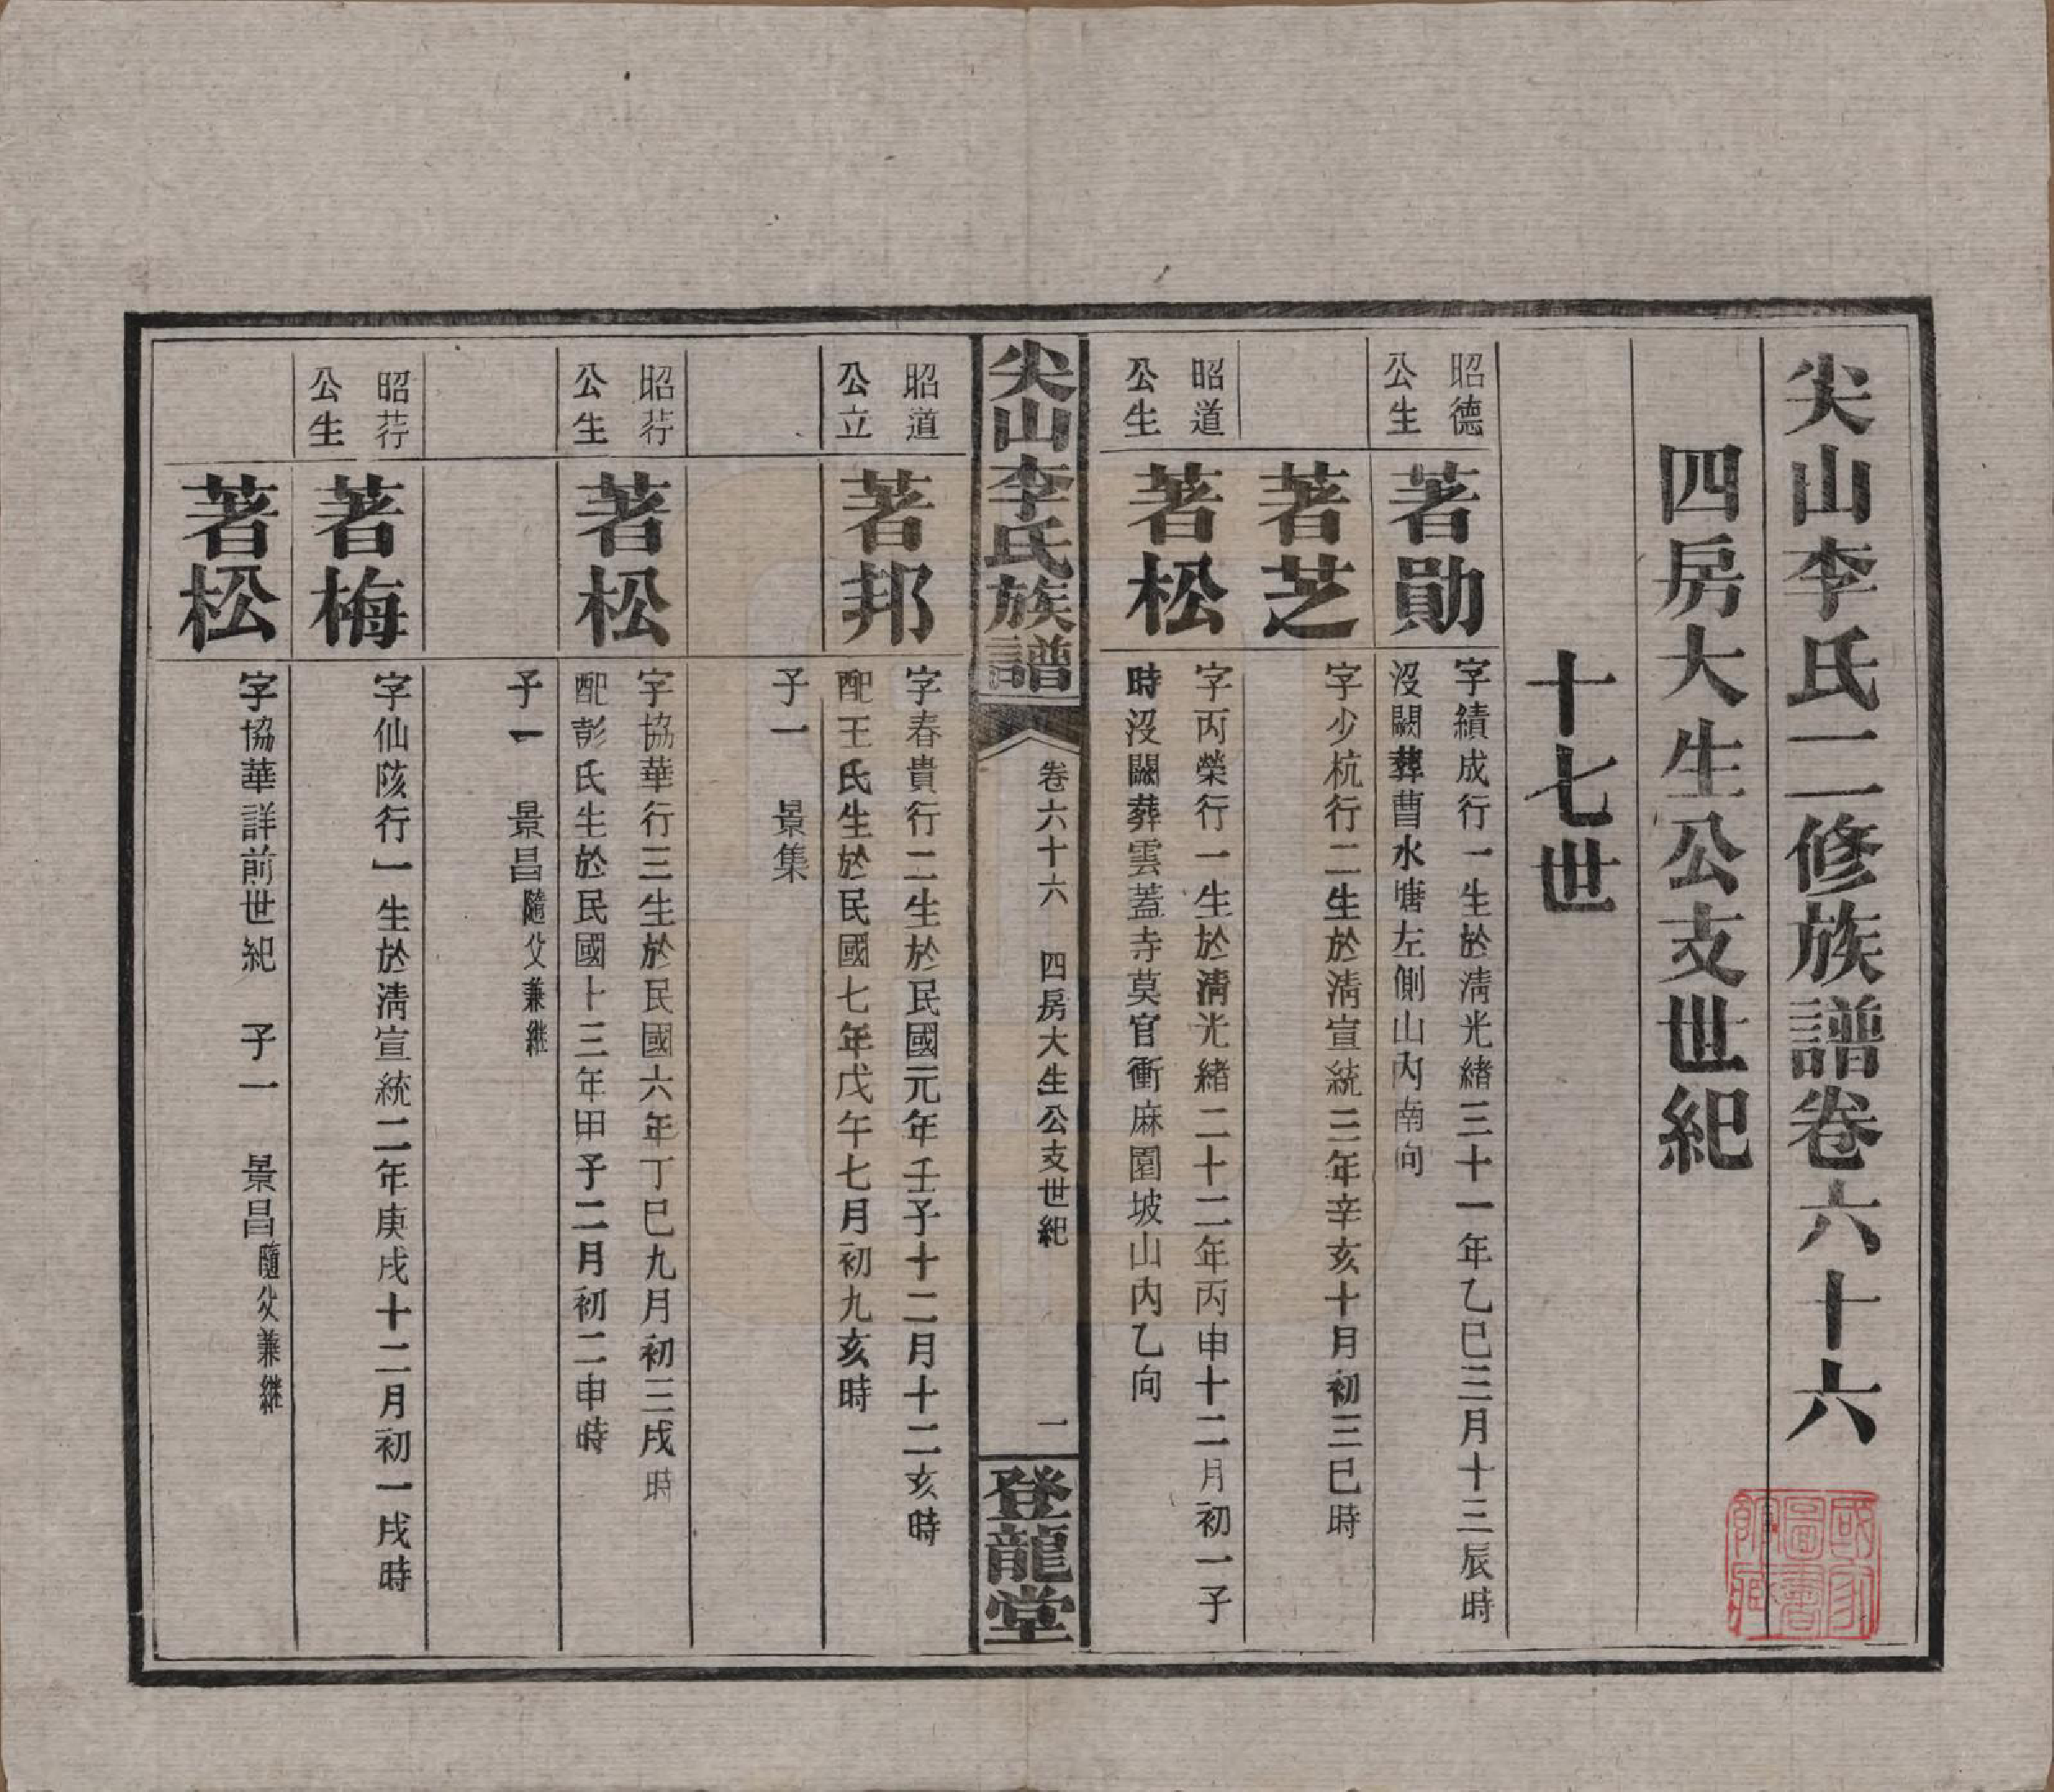 尖山李氏二修族譜卷六十六
四房大生公支世紀
十七世
昭德公生
著勛
字績成行一生於淸光緒三十一年乙巳三月十三辰時
沒闕葬曹水塘左側山內南向
著芝
字少杭行二生於淸宣統三年辛亥十月初三巳時
昭道公生
著松
字丙榮行一生於淸光緒二十二年丙申十二月初一子
時沒闕葬雲蓋寺莫官衝麻園坡山內乙向
尖山李氏族譜
卷六十六 四房大生公支世紀
一
登龍堂
昭道公立
著邦
字春貴行二生於民國元年壬子十二月十二亥時
配王氏生於民國七年戊午七月初九亥時
子一 景集
昭荇公生
著松
字協華行三生於民國六年丁巳九月初三戌時
配彭氏生於民國十三年甲子二月初二申時
子一 景昌隨父兼継
昭荇公生
著梅
字仙陔行一生於淸宣統二年庚戌十二月初一戌時
著松
字協華詳前世紀 子一 景昌隨父兼継
國家圖書館藏